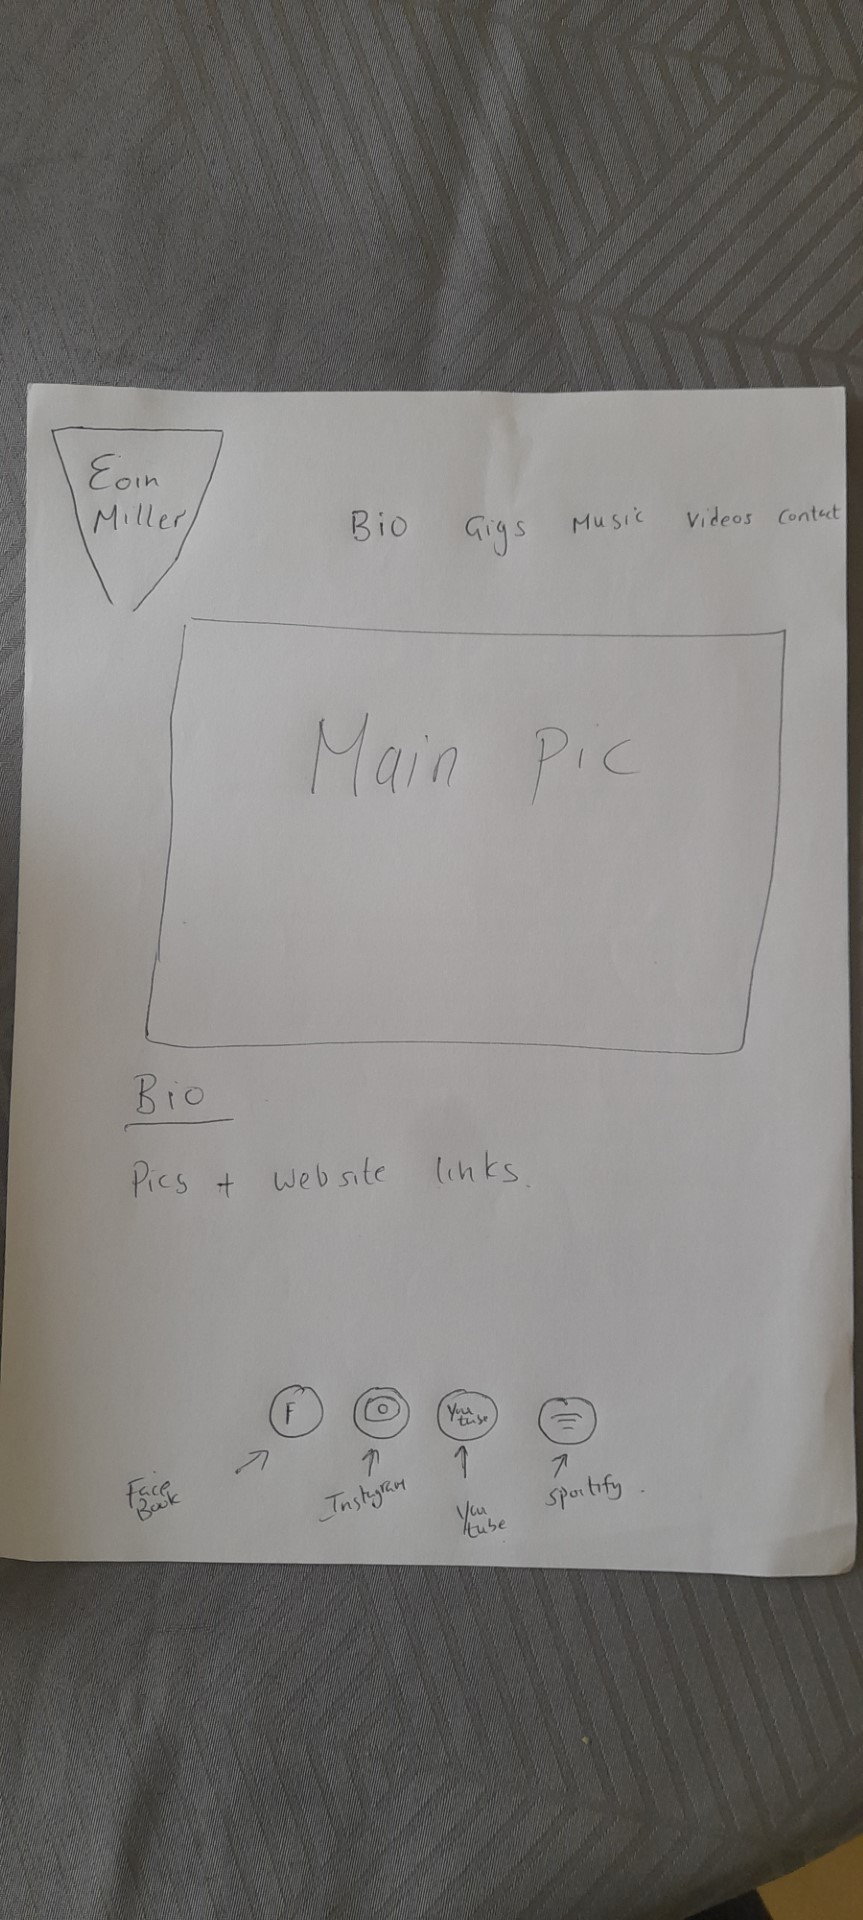 Eoin
Miller
Bio Gigs Music Videos Contact
Main Pic
Bio
Pics + website links.
F You tube
Face Book
Instagram
You tube
sportify.